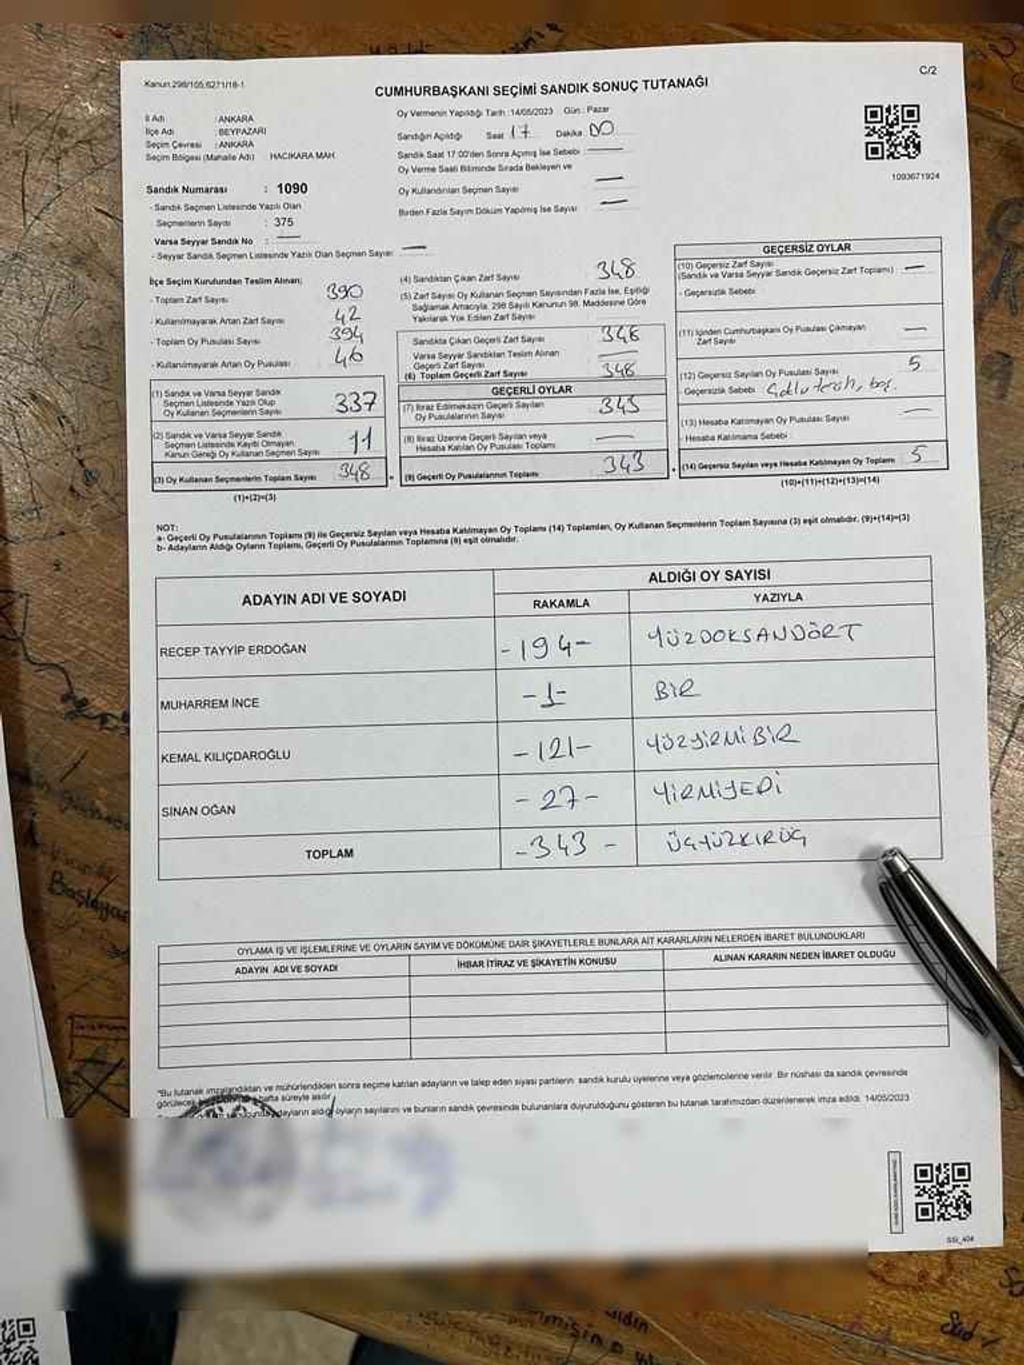 Kanun:298/105,6271/18-1
C/2
CUMHURBAŞKANI SEÇİMİ SANDIK SONUÇ TUTANAĞI
İl Adı : ANKARA
İlçe Adı : BEYPAZARI
Seçim Çevresi : ANKARA
Seçim Bölgesi (Mahalle Adı) HACIKARA MAH.
Sandık Numarası : 1090
- Sandık Seçmen Listesinde Yazılı Olan
Seçmenlerin Sayısı : 375
Varsa Seyyar Sandık No : —
- Seyyar Sandık Seçmen Listesinde Yazılı Olan Seçmen Sayısı : —
Oy Vermenin Yapıldığı Tarih :14/05/2023 Gün : Pazar
Sandığın Açıldığı Saat 17 Dakika 00
Sandık Saat 17:00'den Sonra Açılmış İse Sebebi —
Oy Verme Saati Bitiminde Sırada Bekleyen ve
Oy Kullandırılan Seçmen Sayısı —
Birden Fazla Sayım Döküm Yapılmış İse Sayısı —
1093671924
İlçe Seçim Kurulundan Teslim Alınan;
- Toplam Zarf Sayısı 390
- Kullanılmayarak Artan Zarf Sayısı 42
- Toplam Oy Pusulası 394
- Kullanılmayarak Artan Oy Pusulası 46
(1) Sandık ve Varsa Seyyar Sandık
Seçmen Listesinde Yazılı Olup
Oy Kullanan Seçmenlerin Sayısı 337
(2) Sandık ve Varsa Seyyar Sandık
Seçmen Listesinde Kayıtlı Olmayan
Kanun Gereği Oy Kullanan Seçmen Sayısı 11
(3) Oy Kullanan Seçmenlerin Toplam Sayısı 348
(1)+(2)=(3)
(4) Sandıktan Çıkan Zarf Sayısı 348
(5) Zarf Sayısı Oy Kullanan Seçmen Sayısından Fazla İse, Eşitliği
Sağlamak Amacıyla, 298 Sayılı Kanunun 98. Maddesine Göre
Yakılarak Yok Edilen Zarf Sayısı
Sandıkta Çıkan Geçerli Zarf Sayısı 348
Varsa Seyyar Sandıktan Teslim Alınan
Geçerli Zarf Sayısı —
(6) Toplam Geçerli Zarf Sayısı 348
GEÇERLİ OYLAR
(7) İtiraz Edilmeksizin Geçerli Sayılan
Oy Pusulalarının Sayısı 343
(8) İtiraz Üzerine Geçerli Sayılan veya
Hesaba Katılan Oy Pusulası Toplamı —
(9) Geçerli Oy Pusulalarının Toplamı 343
GEÇERSİZ OYLAR
(10) Geçersiz Zarf Sayısı
(Sandık ve Varsa Seyyar Sandık Geçersiz Zarf Toplamı) —
- Geçersizlik Sebebi:
(11) İçinden Cumhurbaşkanı Oy Pusulası Çıkmayan
Zarf Sayısı —
(12) Geçersiz Sayılan Oy Pusulası Sayısı 5
- Geçersizlik Sebebi: boş.
(13) Hesaba Katılmayan Oy Pusulası Sayısı —
- Hesaba Katılmama Sebebi :
(14) Geçersiz Sayılan veya Hesaba Katılmayan Oy Toplamı 5
(10)+(11)+(12)+(13)=(14)
NOT:
a- Geçerli Oy Pusulalarının Toplamı (9) ile Geçersiz Sayılan veya Hesaba Katılmayan Oy Toplamı (14) Toplamları, Oy Kullanan Seçmenlerin Toplam Sayısına (3) eşit olmalıdır. (9)+(14)=(3)
b- Adayların Aldığı Oyların Toplamı, Geçerli Oy Pusulalarının Toplamına (9) eşit olmalıdır.
ADAYIN ADI VE SOYADI ALDIĞI OY SAYISI
RAKAMLA YAZIYLA
RECEP TAYYİP ERDOĞAN -194- YÜZDOKSANDÖRT
MUHARREM İNCE -1- BİR
KEMAL KILIÇDAROĞLU -121- YÜZYİRMİBİR
SİNAN OĞAN -27- YİRMİYEDİ
TOPLAM -343- ÜÇYÜZKIRÜÇ
OYLAMA İŞ VE İŞLEMLERİNE VE OYLARIN SAYIM VE DÖKÜMÜNE DAİR ŞİKAYETLERLE BUNLARA AİT KARARLARIN NELERDEN İBARET BULUNDUKLARI
ADAYIN ADI VE SOYADI İHBAR İTİRAZ VE ŞİKAYETİN KONUSU ALINAN KARARIN NEDEN İBARET OLDUĞU
"Bu tutanak imzalandıktan ve mühürlendikten sonra seçime katılan adayların ve talep eden siyasi partilerin sandık kurulu üyelerine veya gözlemcilerine verilir. Bir nüshası da sandık çevresinde
görülecek hafta süreyle asılır.
adayların aldığı oyların sayılarını ve bunların sandık çevresinde bulunanlara duyurulduğunu gösteren bu tutanak tarafımızdan düzenlenerek imza edildi. 14/05/2023
SSİ_404
Başlayan